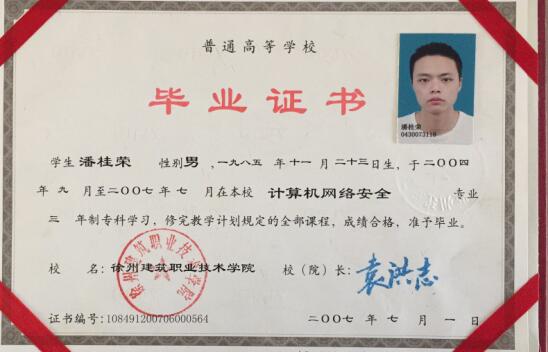 普通高等学校
毕业证书
潘桂荣
0430073118
学生 潘桂荣 性别 男 , 一九八五 年 十一 月 二十三 日生, 于 二〇〇四
年 九 月至 二〇〇七 年 七 月在本校 计算机网络安全 专业
三 年制专科学习, 修完教学计划规定的全部课程, 成绩合格, 准予毕业。
校 名: 徐州建筑职业技术学院 校(院)长: 袁洪志
徐州建筑职业技术学院
证书编号: 108491200706000564 二〇〇七 年 七 月 一 日